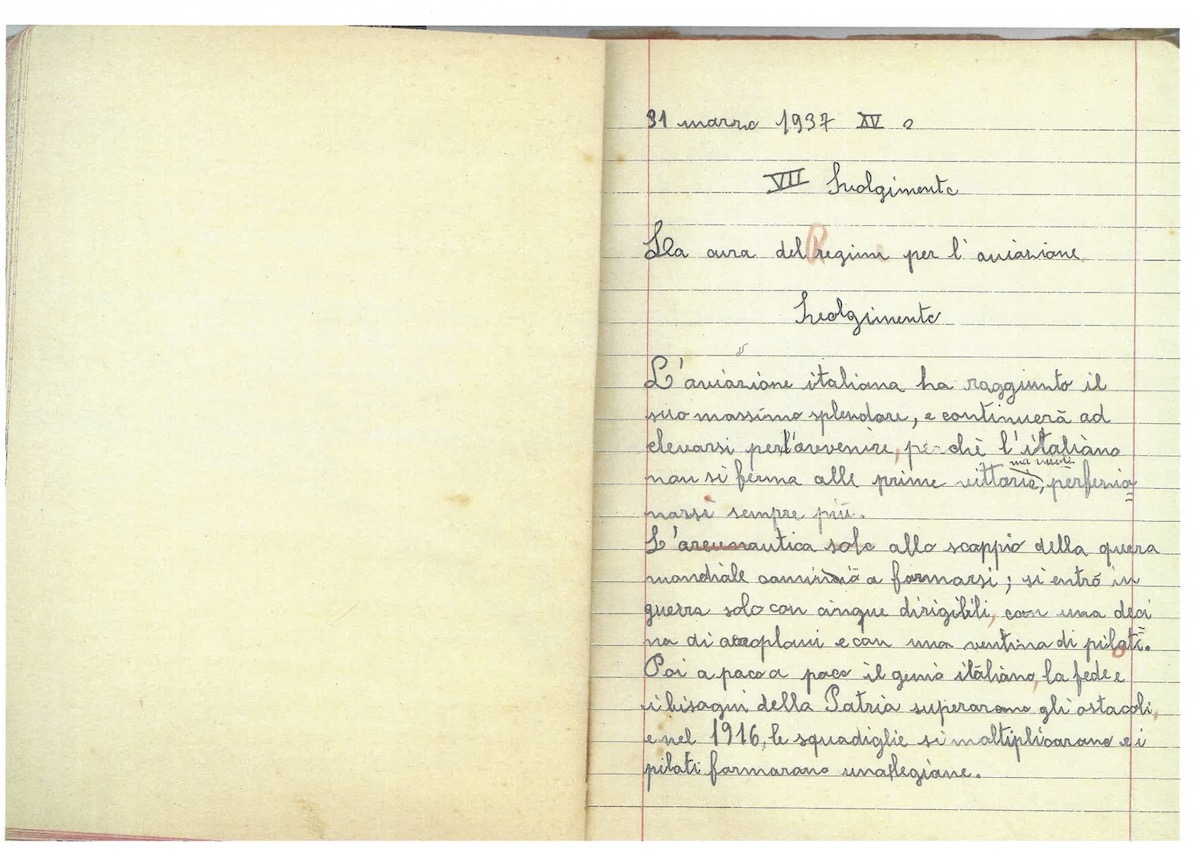 31 marzo 1937 XV °
VII Svolgimento
La cura del Regime per l'aviazione
Svolgimento
L'aviazione italiana ha raggiunto il
suo massimo splendore, e continuerà ad
elevarsi per l'avvenire, perchè l'italiano
non si ferma alle prime vittorie, ma vuole perfezio=
narsi sempre più.
L'areunautica solo allo scoppio della guera
mondiale cominciò a formarsi; si entrò in
guerra solo con cinque dirigibili, con una deci=
na di aeroplani e con una ventina di piloti.
Poi a poco a poco il genio italiano, la fede e
i bisogni della Patria superarono gli ostacoli,
e nel 1916, le squadiglie si moltiplicarono e i
piloti formarono una legione.